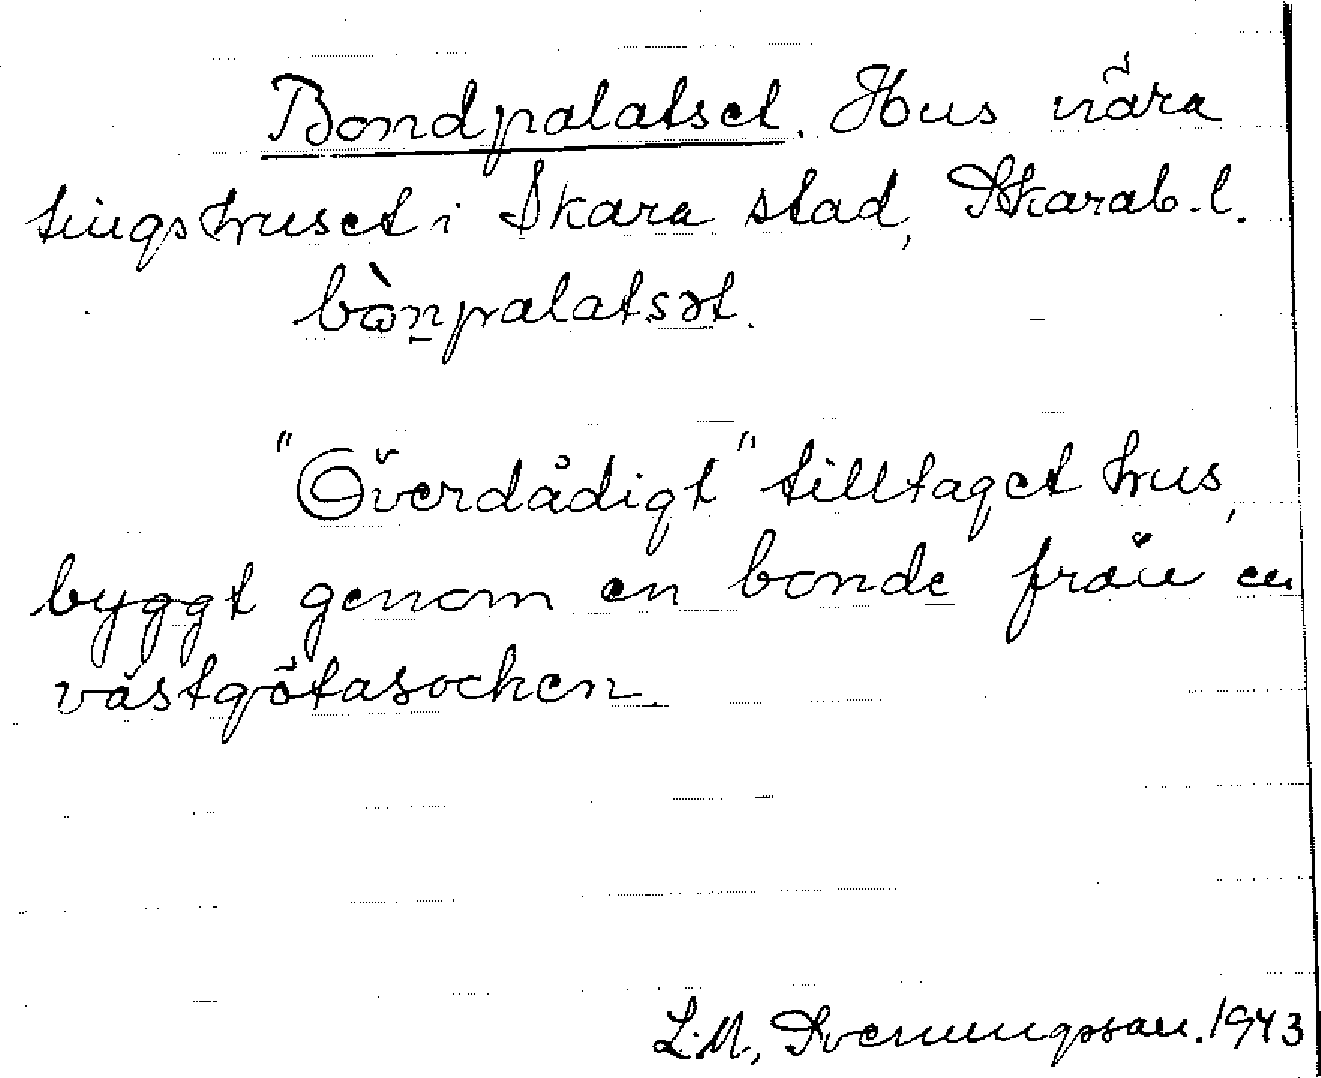 Bondpalatset. Hus nära
tingshuset i Skara stad, Skarab. l.
bò̱npalatsət.
"Överdådigt" tilltaget hus,
byggt genom en bonde från en
västgötasocken.
L. M. Svenungsson. 1943